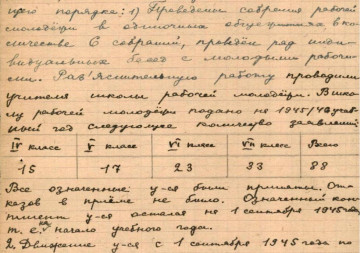 щего порядка: 1) Проведены собрания рабочей
молодёжи в общежитиях, в ко-
личестве 6 собраний, проведён ряд инди-
видуальных бесед с молодыми рабочи-
ми. Раз'яснительную работу проводили
учителя школы рабочей молодёжи. В шко-
лу рабочей молодёжи подано на 1945/46 учеб-
ный год следующее количество заявлений
IV класс V класс VI класс VII класс Всего
15 17 23 33 88
Все означенные у-ся были приняты. От-
казов в приёме не было. Означенный кон-
тингент у-ся остался на 1 сентября 1945 года,
т. е. на начало учебного года.
2. Движение у-ся с 1 сентября 1945 года по